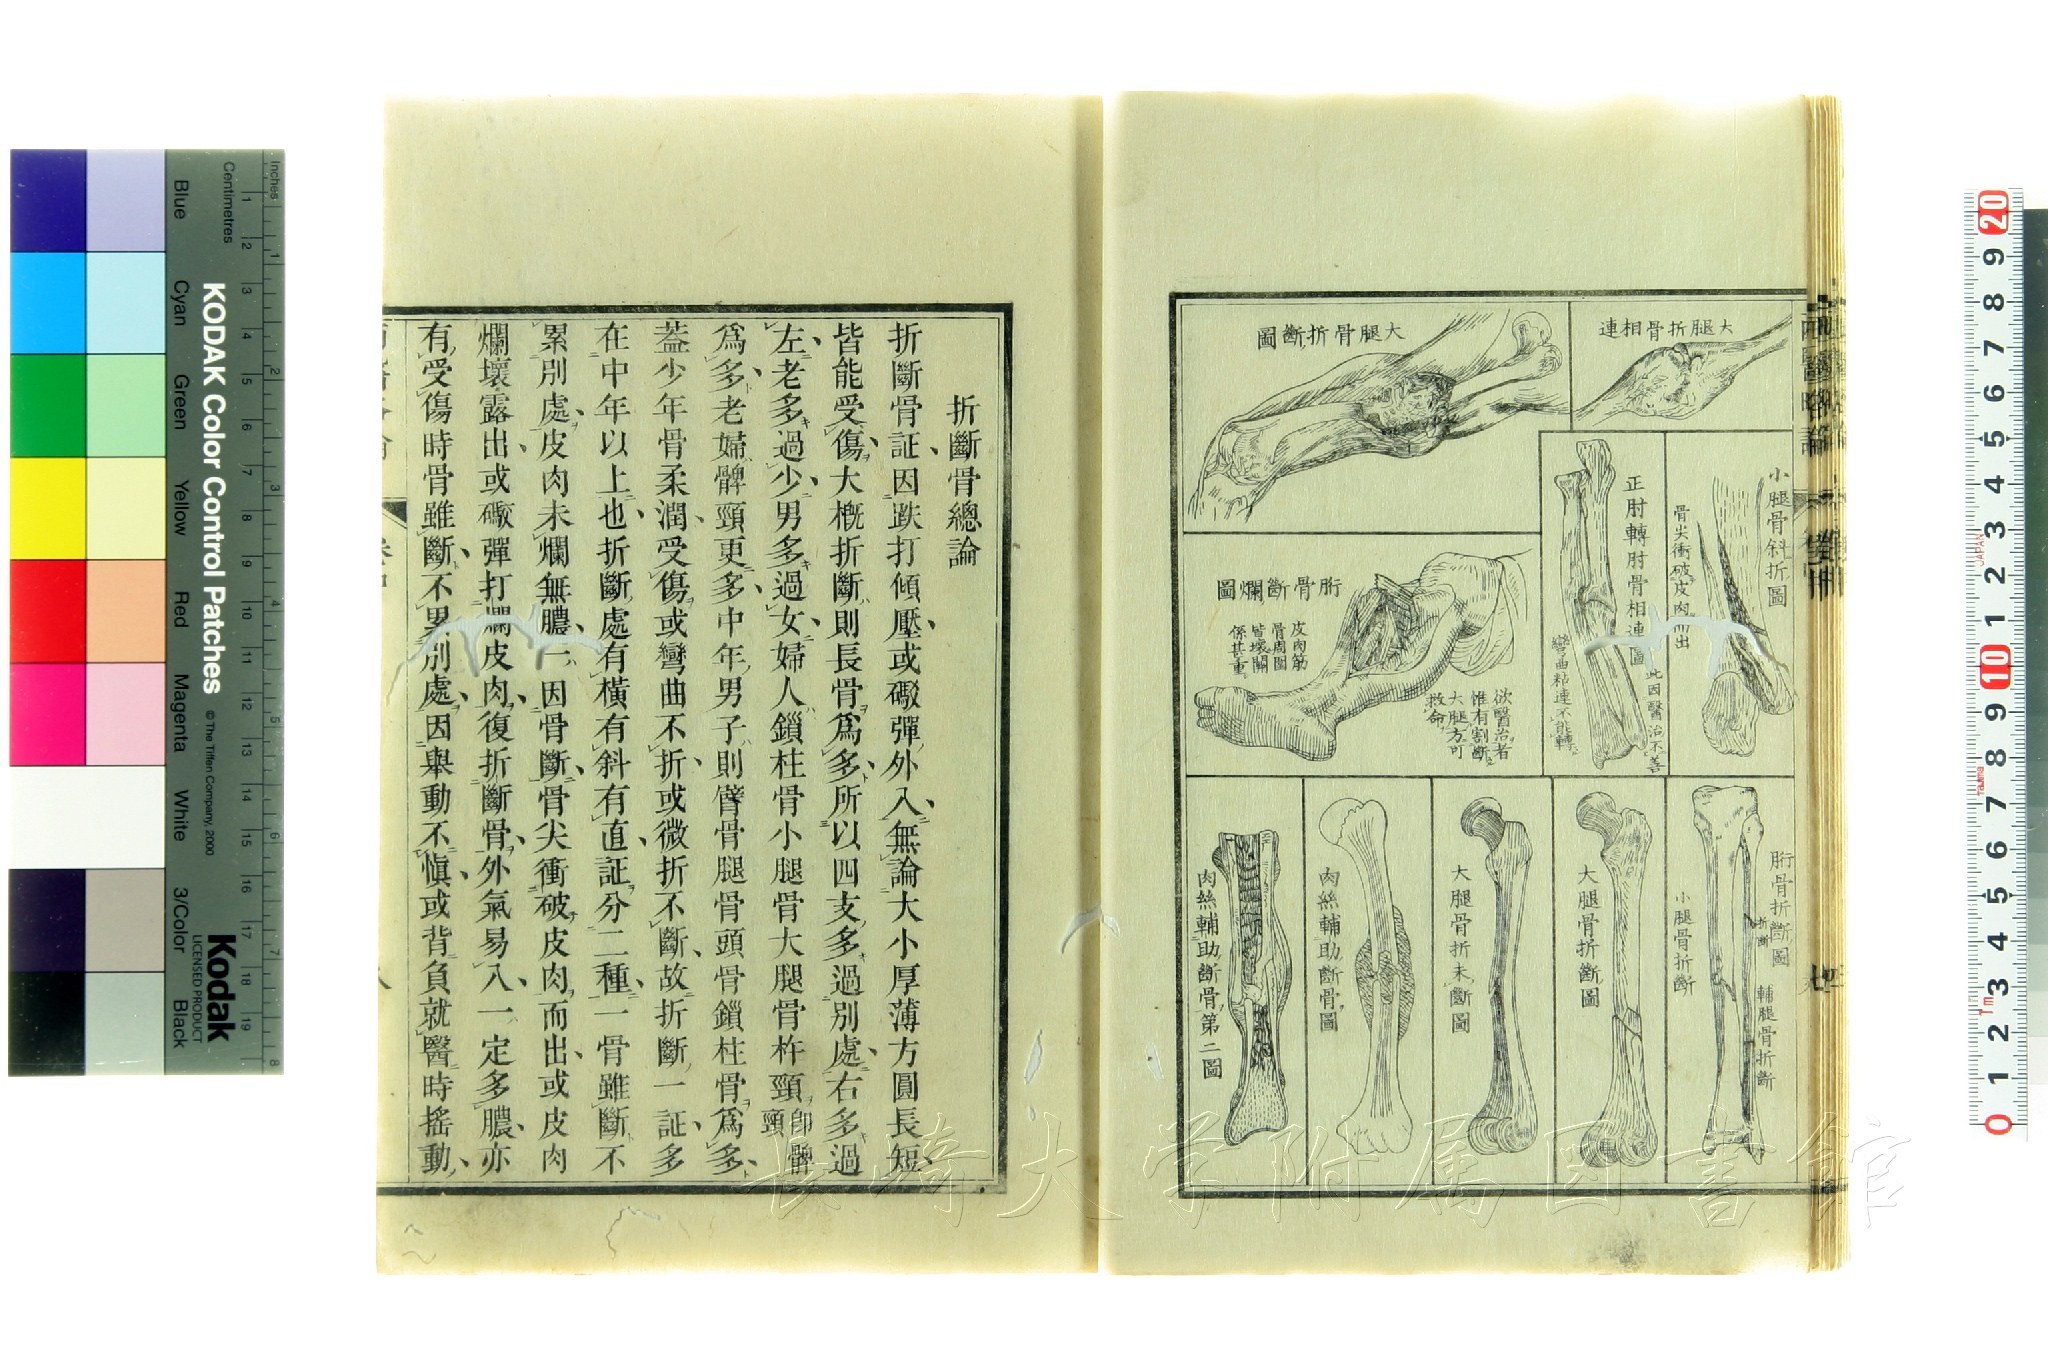 大腿折骨相連
大腿骨折斷圖
小腿骨斜折圖
骨尖衝破皮肉而出
正肘轉肘骨相連圖
此因醫治不善
彎曲粘連不能轉
胻骨斷爛圖
皮肉筋
骨周圍
皆壞關
係甚重
欲醫治者
惟有割斷
大腿方可
救命
胻骨折斷圖
折斷
輔腿骨折斷
小腿骨折斷
大腿骨折斷圖
大腿骨折未斷圖
肉絲輔助斷骨圖
肉絲輔助斷骨第二圖
折斷骨總論
折斷骨証因跌打傾壓或礮彈外入無論大小厚薄方圓長短
皆能受傷大概折斷則長骨爲多所以四支多過別處右多過
左老多過少男多過女婦人鎖柱骨小腿骨大腿骨杵頸卽髀頸
爲多老婦髀頸更多中年男子則臂骨腿骨頭骨鎖柱骨爲多
葢少年骨柔潤受傷或彎曲不折或微折不斷故折斷一証多
在中年以上也折斷處有橫有斜有直証分二種一骨雖斷不
累別處皮肉未爛無膿一因骨斷骨尖衝破皮肉而出或皮肉
爛壞露出或礮彈打爛皮肉復折斷骨外氣易入一定多膿亦
有受傷時骨雖斷不累別處因舉動不愼或背負就醫時搖動
長崎大学附属図書館
KODAK Color Control Patches
© The Tiffen Company, 2000
Kodak
LICENSED PRODUCT
Blue
Cyan
Green
Yellow
Red
Magenta
White
3/Color
Black
Inches
1 2 3 4 5 6 7 8
Centimetres
1 2 3 4 5 6 7 8 9 10 11 12 13 14 15 16 17 18 19
20 9 8 7 6 5 4 3 2 1 10 9 8 7 6 5 4 3 2 1 0
JAPAN